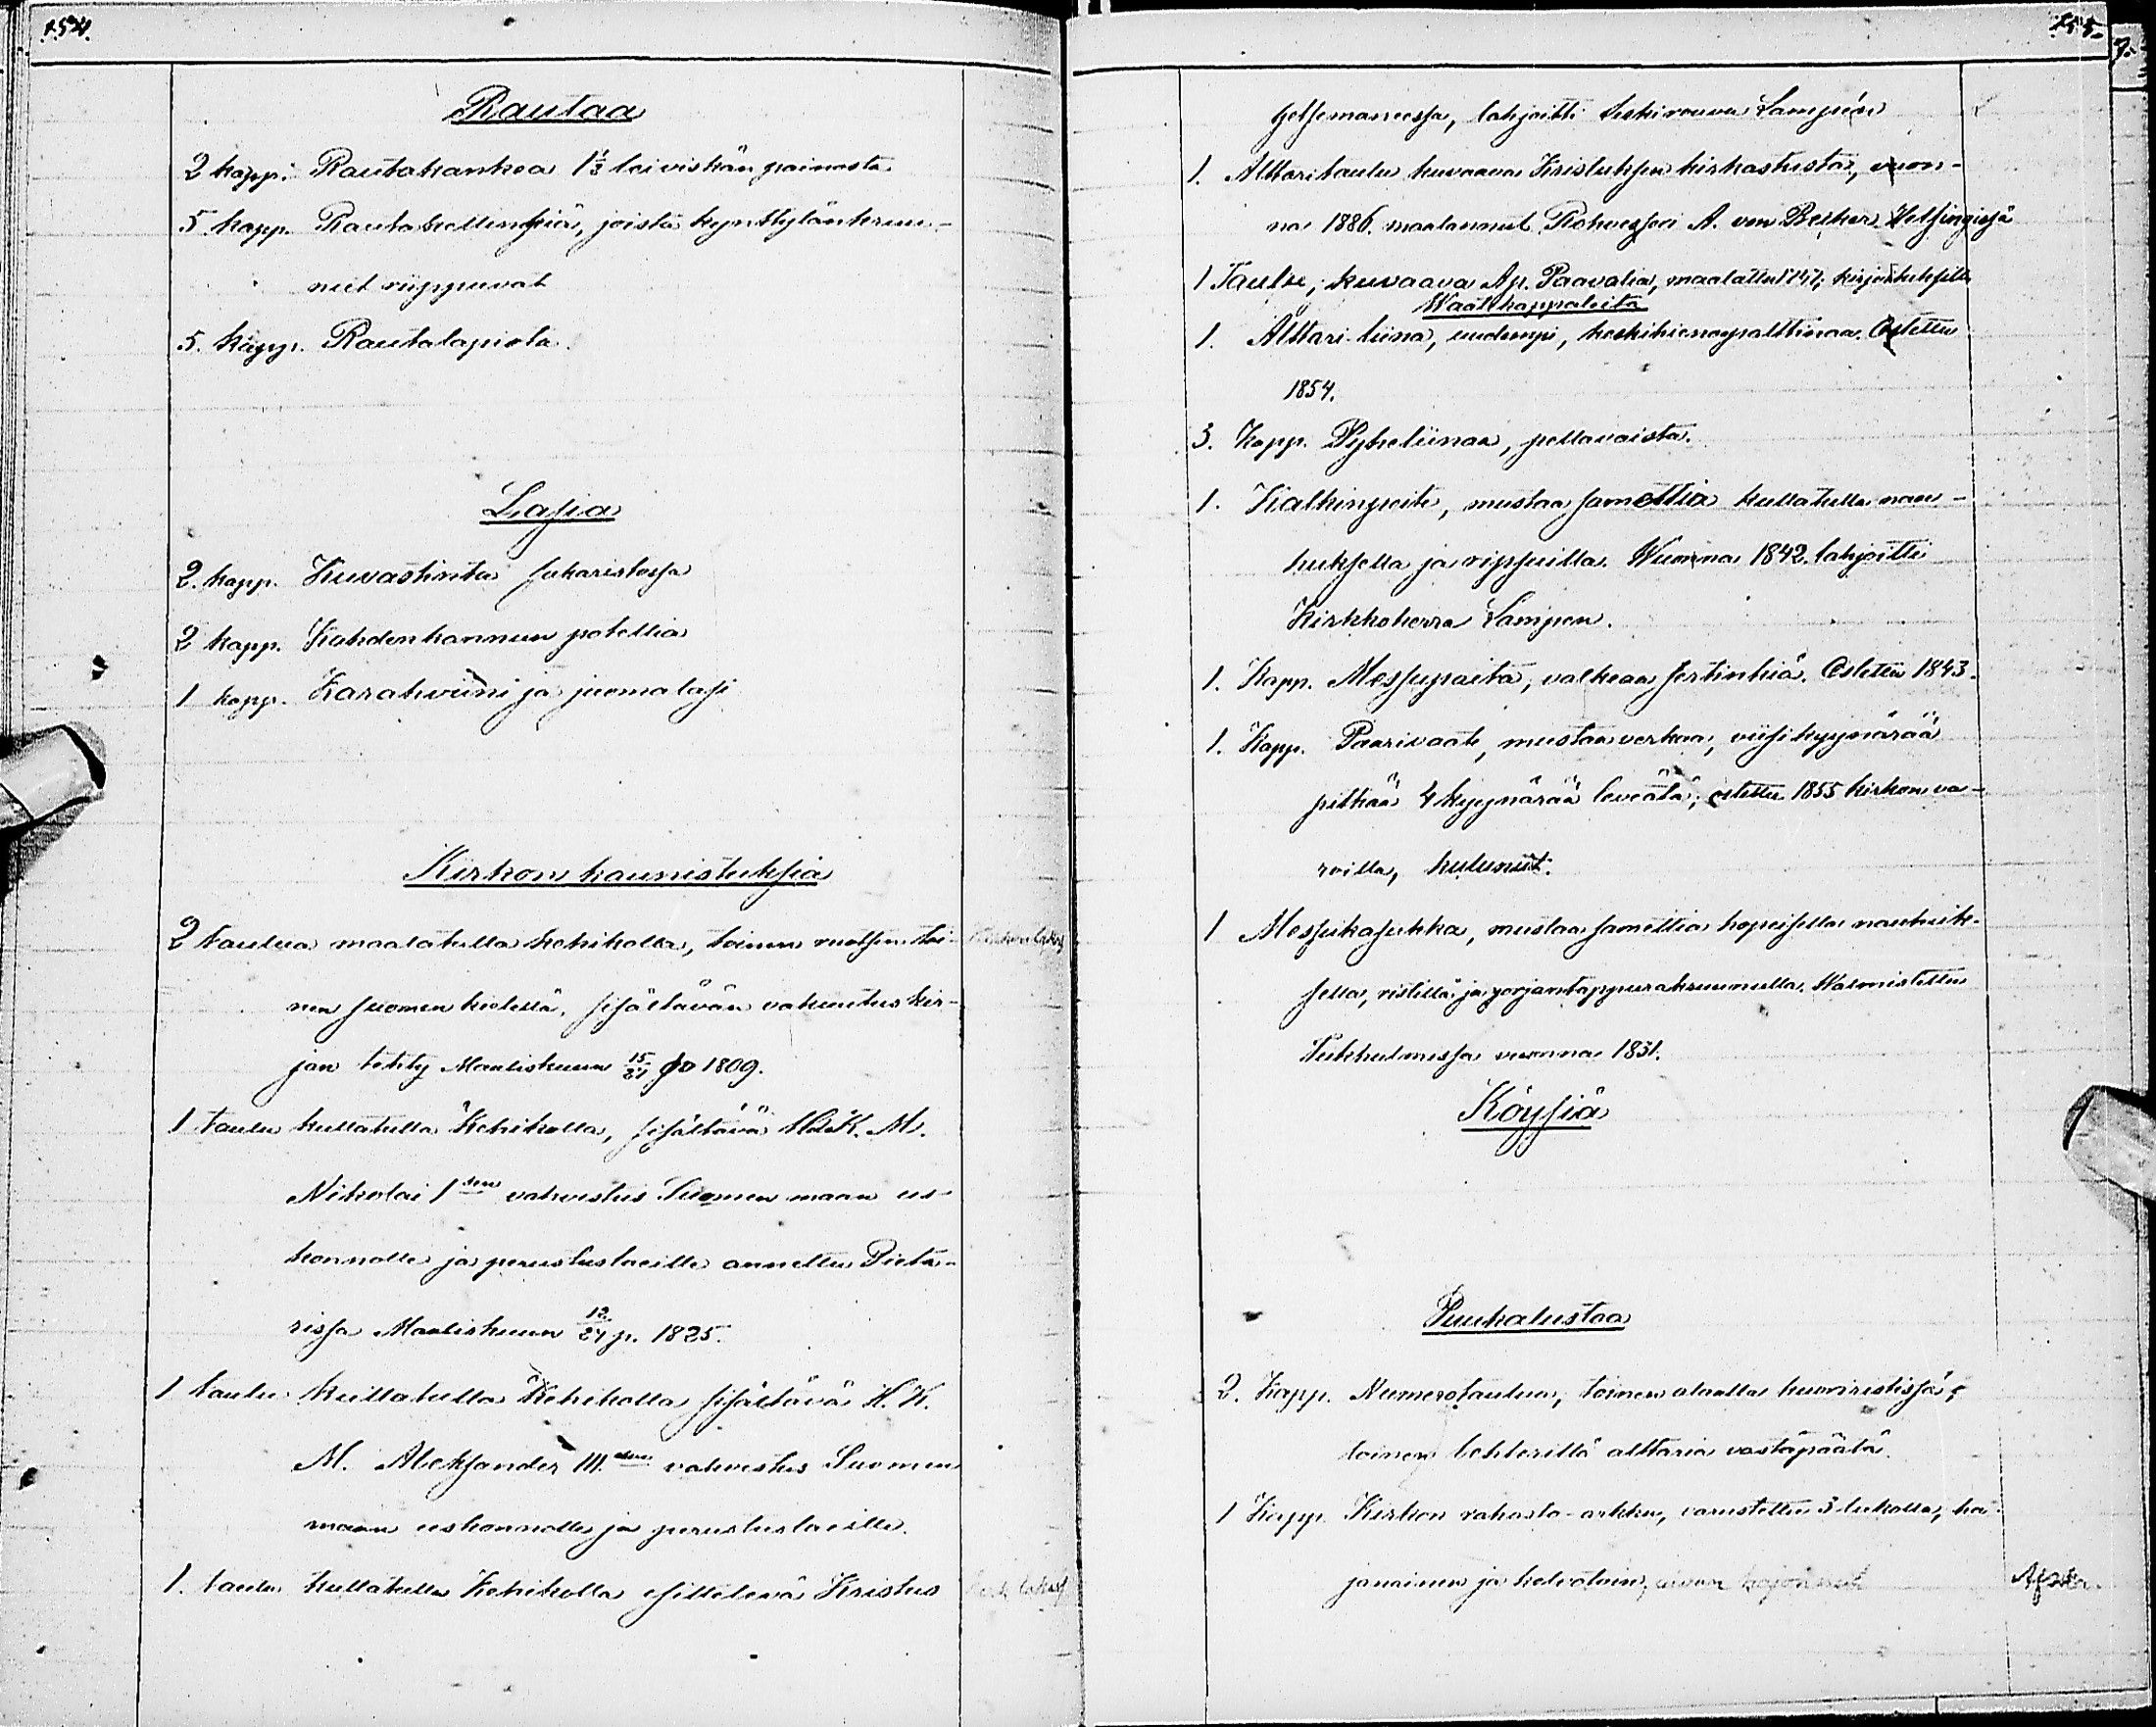 154.
Rautaa
2 kapp. Rautakankea 1 1/3 leiviskän painosta
5. kapp. Rautakettinkiä, joista kynttyläkruu-
nut riippuvat
5. kapp. Rautalapiota.
Lasia
2. kapp. Kuvastinta sakaristossa
2 kapp. Kahdenkannun potellia
1 kapp. Karahviini ja juomalasi
Kirkon kaunistuksia
2 taulua maalatulla kehikolla, toinen ruotsin toi-
nen suomen kielellä, sisältävän vakuutuskir-
jan tehty Maaliskuun 15/27 p 1809.
1 taulu kullatulla Kehikolla, sisältävä H. K. M.
Nikolai 1sen vahvistus Suomen maan us-
konnolle ja perustuslaeille annettu Pieta-
rissa Maaliskuun 12/24 p. 1825.
1 taulu kullatulla Kehikolla sisältävä K. K.
M. Aleksander III. vahvistus Suomen
maan uskonnolle ja perustuslaeille.
1. taulu kullatulla Kehikolla esittelevä Kristus
155.
Getsemaneessa, lahjoitti leskirouva Lampén
1. Alttaritaulu kuvaava Kristuksen kirkastusta, vuon-
na 1886. maalannut Rohvessori A. von Becker Helsingissä
1 Taulu, kuvaava Ap. Paavalia, maalattu 1747, kirjoituksilla
Waatekappaleita
1. Alttari-liina, uudempi, keskihienoapalttinaa. Ostettu
1854.
3. Kapp. Pyheliinaa, pellavaista.
1. Kalkinpeite, mustaa samettia kullatulla nau-
huksella ja ripsuilla. Wuonna 1842. lahjoitti
Kirkkoherra Lampen.
1. Kapp. Messupaita, valkeaa sertinkiä. Ostettu 1843.
1. Kapp. Paarivaate, mustaa verkaa, viisikyynärää
pitkää 4 kyynärää leveätä; ostettu 1855 kirkon va-
roilla, kulunut.
1 Messukasukka, mustaa samettia hopeisella nauhuk-
sella, ristillä ja orjantappurakruunulla. Walmistettu
Tukhulmissa vuonna 1831.
Köysiä
Puukalustoa
2. Kapp. Numerotaulua, toinen alaalla kuoriristissä,
toinen lehterillä alttaria vastapäätä.
1 Kapp. Kirkon rahasto-arkku, varustettu 3 lukolla, ha-
janainen ja kelvotoin,